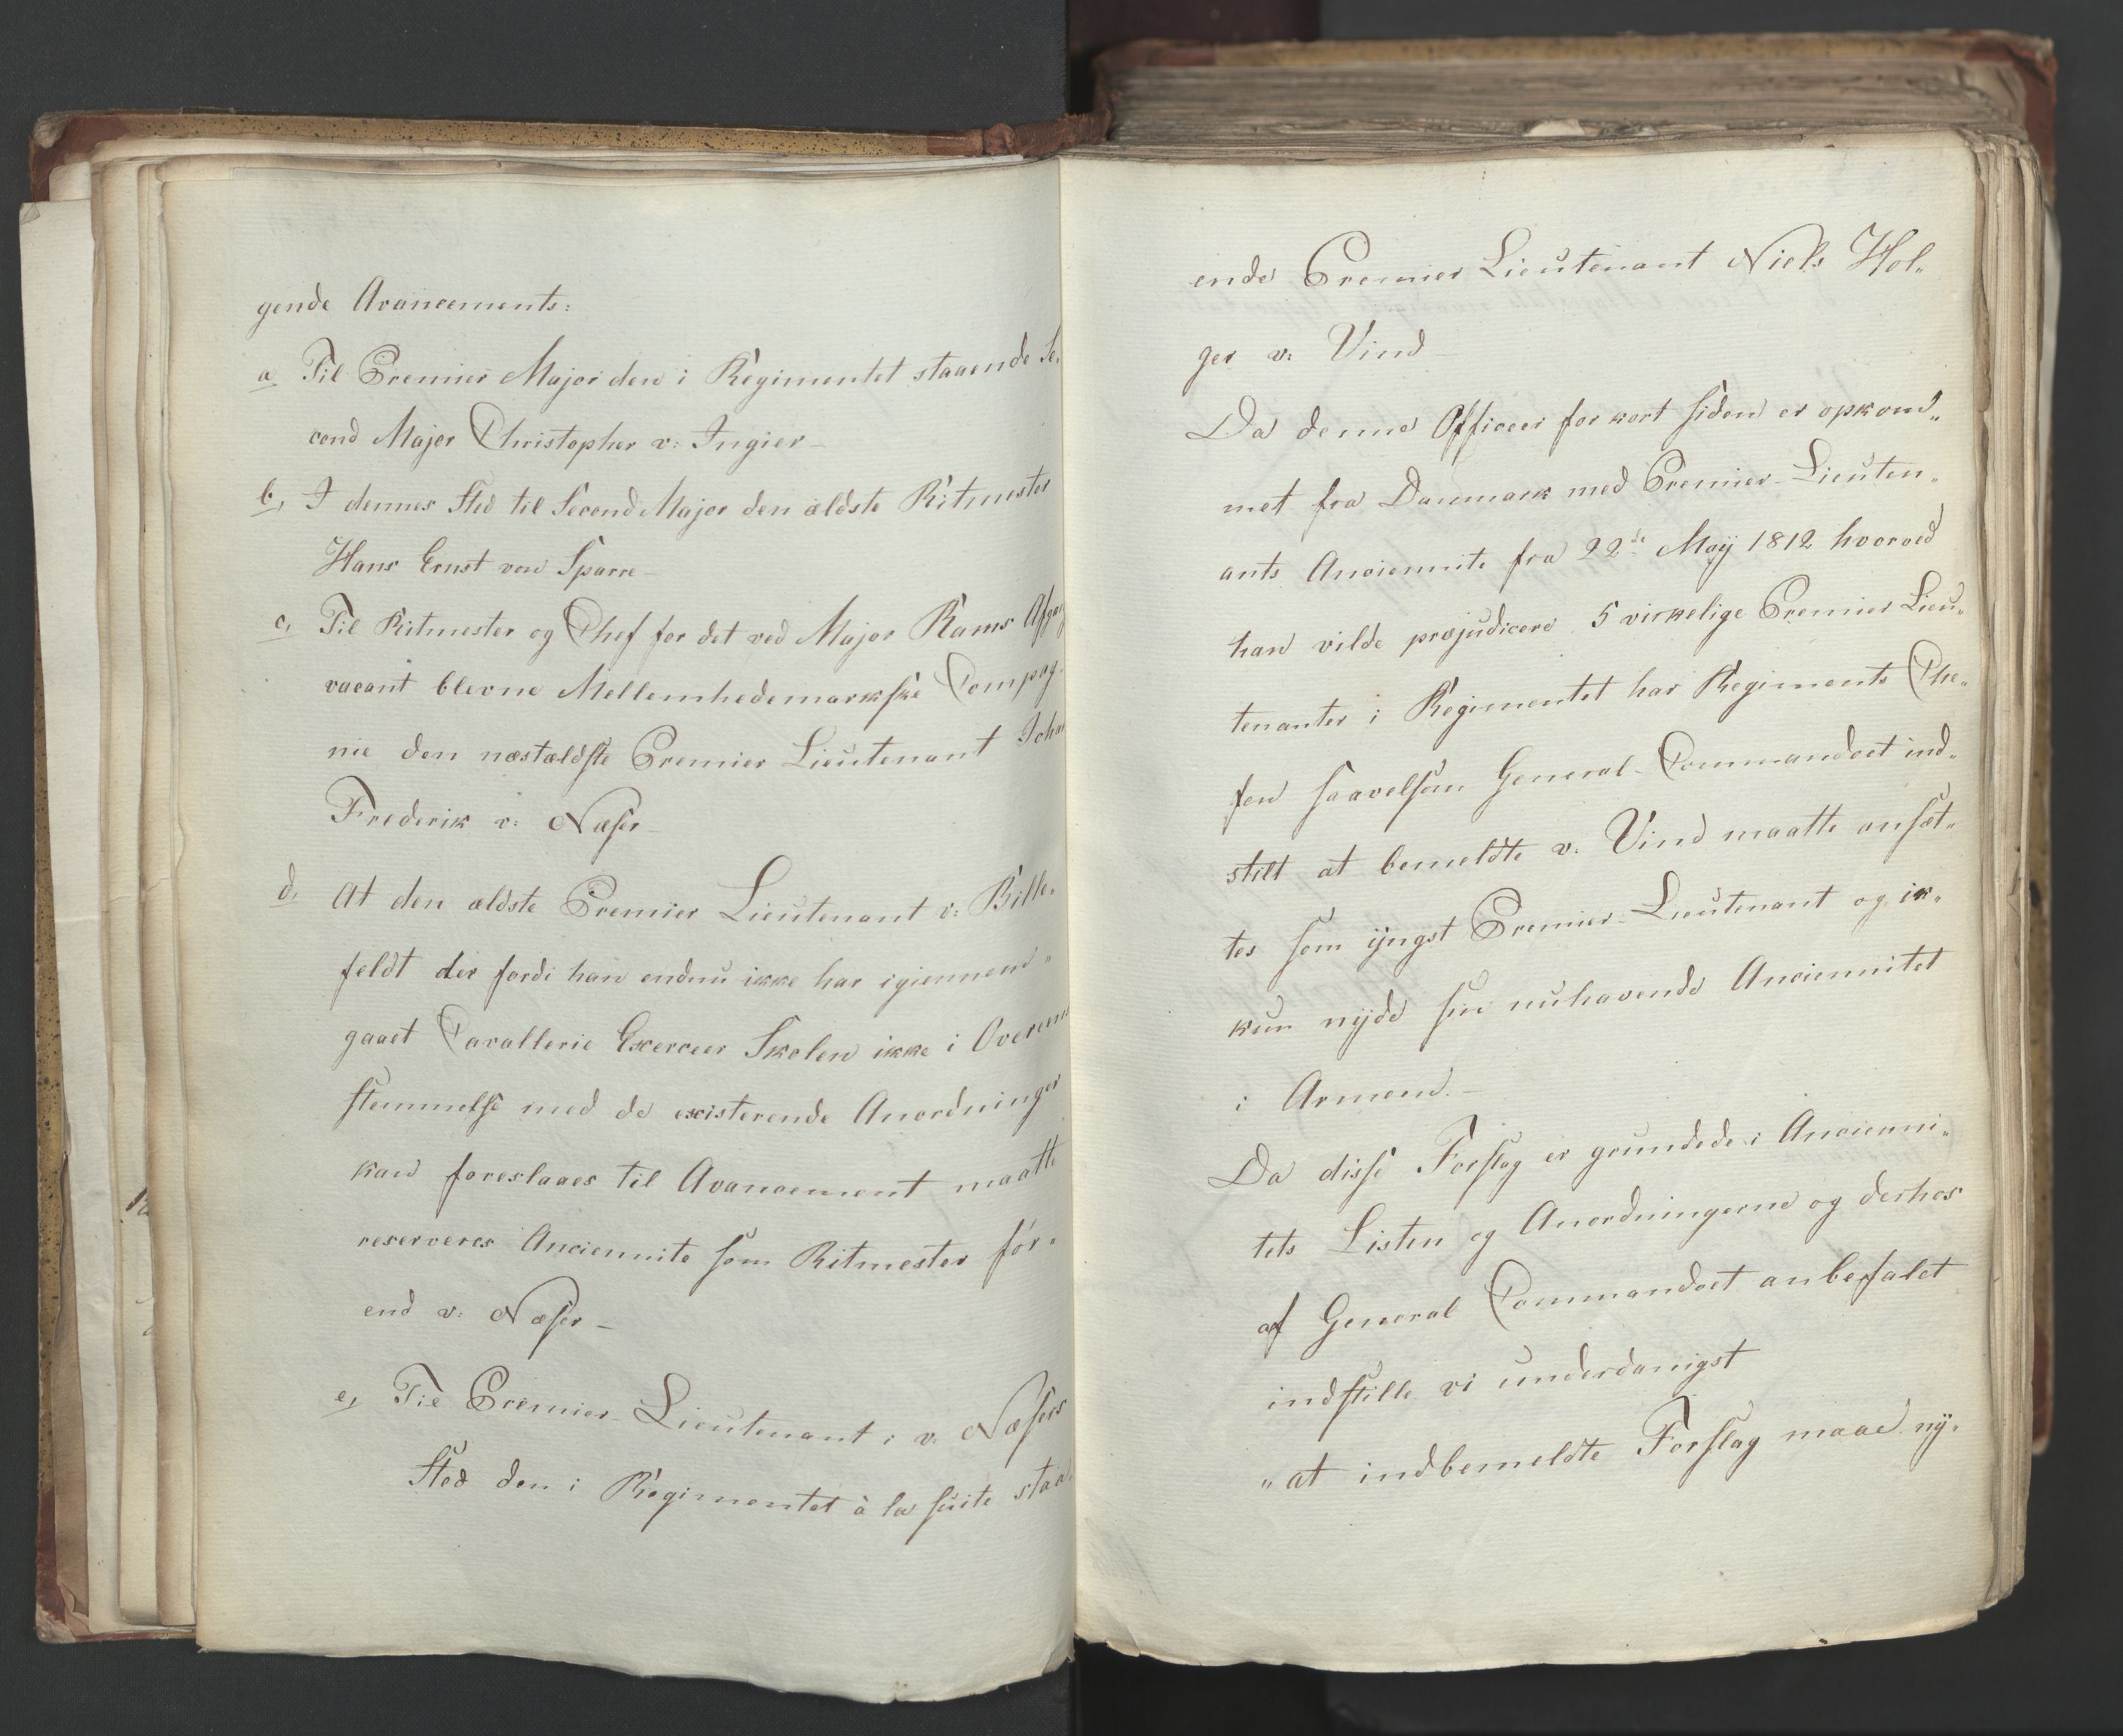 gende Avancements:
a, Til Premier Major den i Regimentet staaende Se-
cond Major Christopher v: Ingier –
b, I dennes Sted til Second Major den ældste Ritmester
Hans Ernst von Sparre –
c, Til Ritmester og Chef for det ved Major Rams Afgang
vacant blevne Mellemhedemarkske Compag-
nie den næstældste Premier Lieutenant Johan
Frederik v: Næser –
d, At den ældste Premier Lieutenant v: Bille-
feldt der fordi han endnu ikke har igiennem-
gaaet Cavallerie Exerceer Skolen ikke i Overeens
stemmelse med de existerende Anordninger
kan foreslaaes til Avancement maatte
reserveres Anciennite som Ritmester for-
end v: Næser –
e, Til Premier-Lieutenant i v: Næsers
Sted den i Regimentet à la suite staa-
ende Premier Lieutenant Niels Hol-
ger v: Vind
Da denne Officeer for kort siden er opkom-
met fra Danmark med Premier-Lieuten-
ants Anciennite fra 22de Maÿ 1812 hvorved
han vilde præjudicere 5 virkelige Premier Lieu-
tenanter i Regimentet har Regiments Che-
fen saavelsom General-Commandoet ind-
stilt at bemeldte v. Vind maatte ansæt-
tes som ÿngst Premier-Lieutenant og ik-
kun nÿde sin nuhavende Anciennitet
i Armeen. –
Da disse Forslag er grundede i Ancienni-
tets Listen og Anordningerne og derhos
af General Commandoet anbefalet
indstille vi underdanigst
"at indbemeldte Forslag maae nÿ-